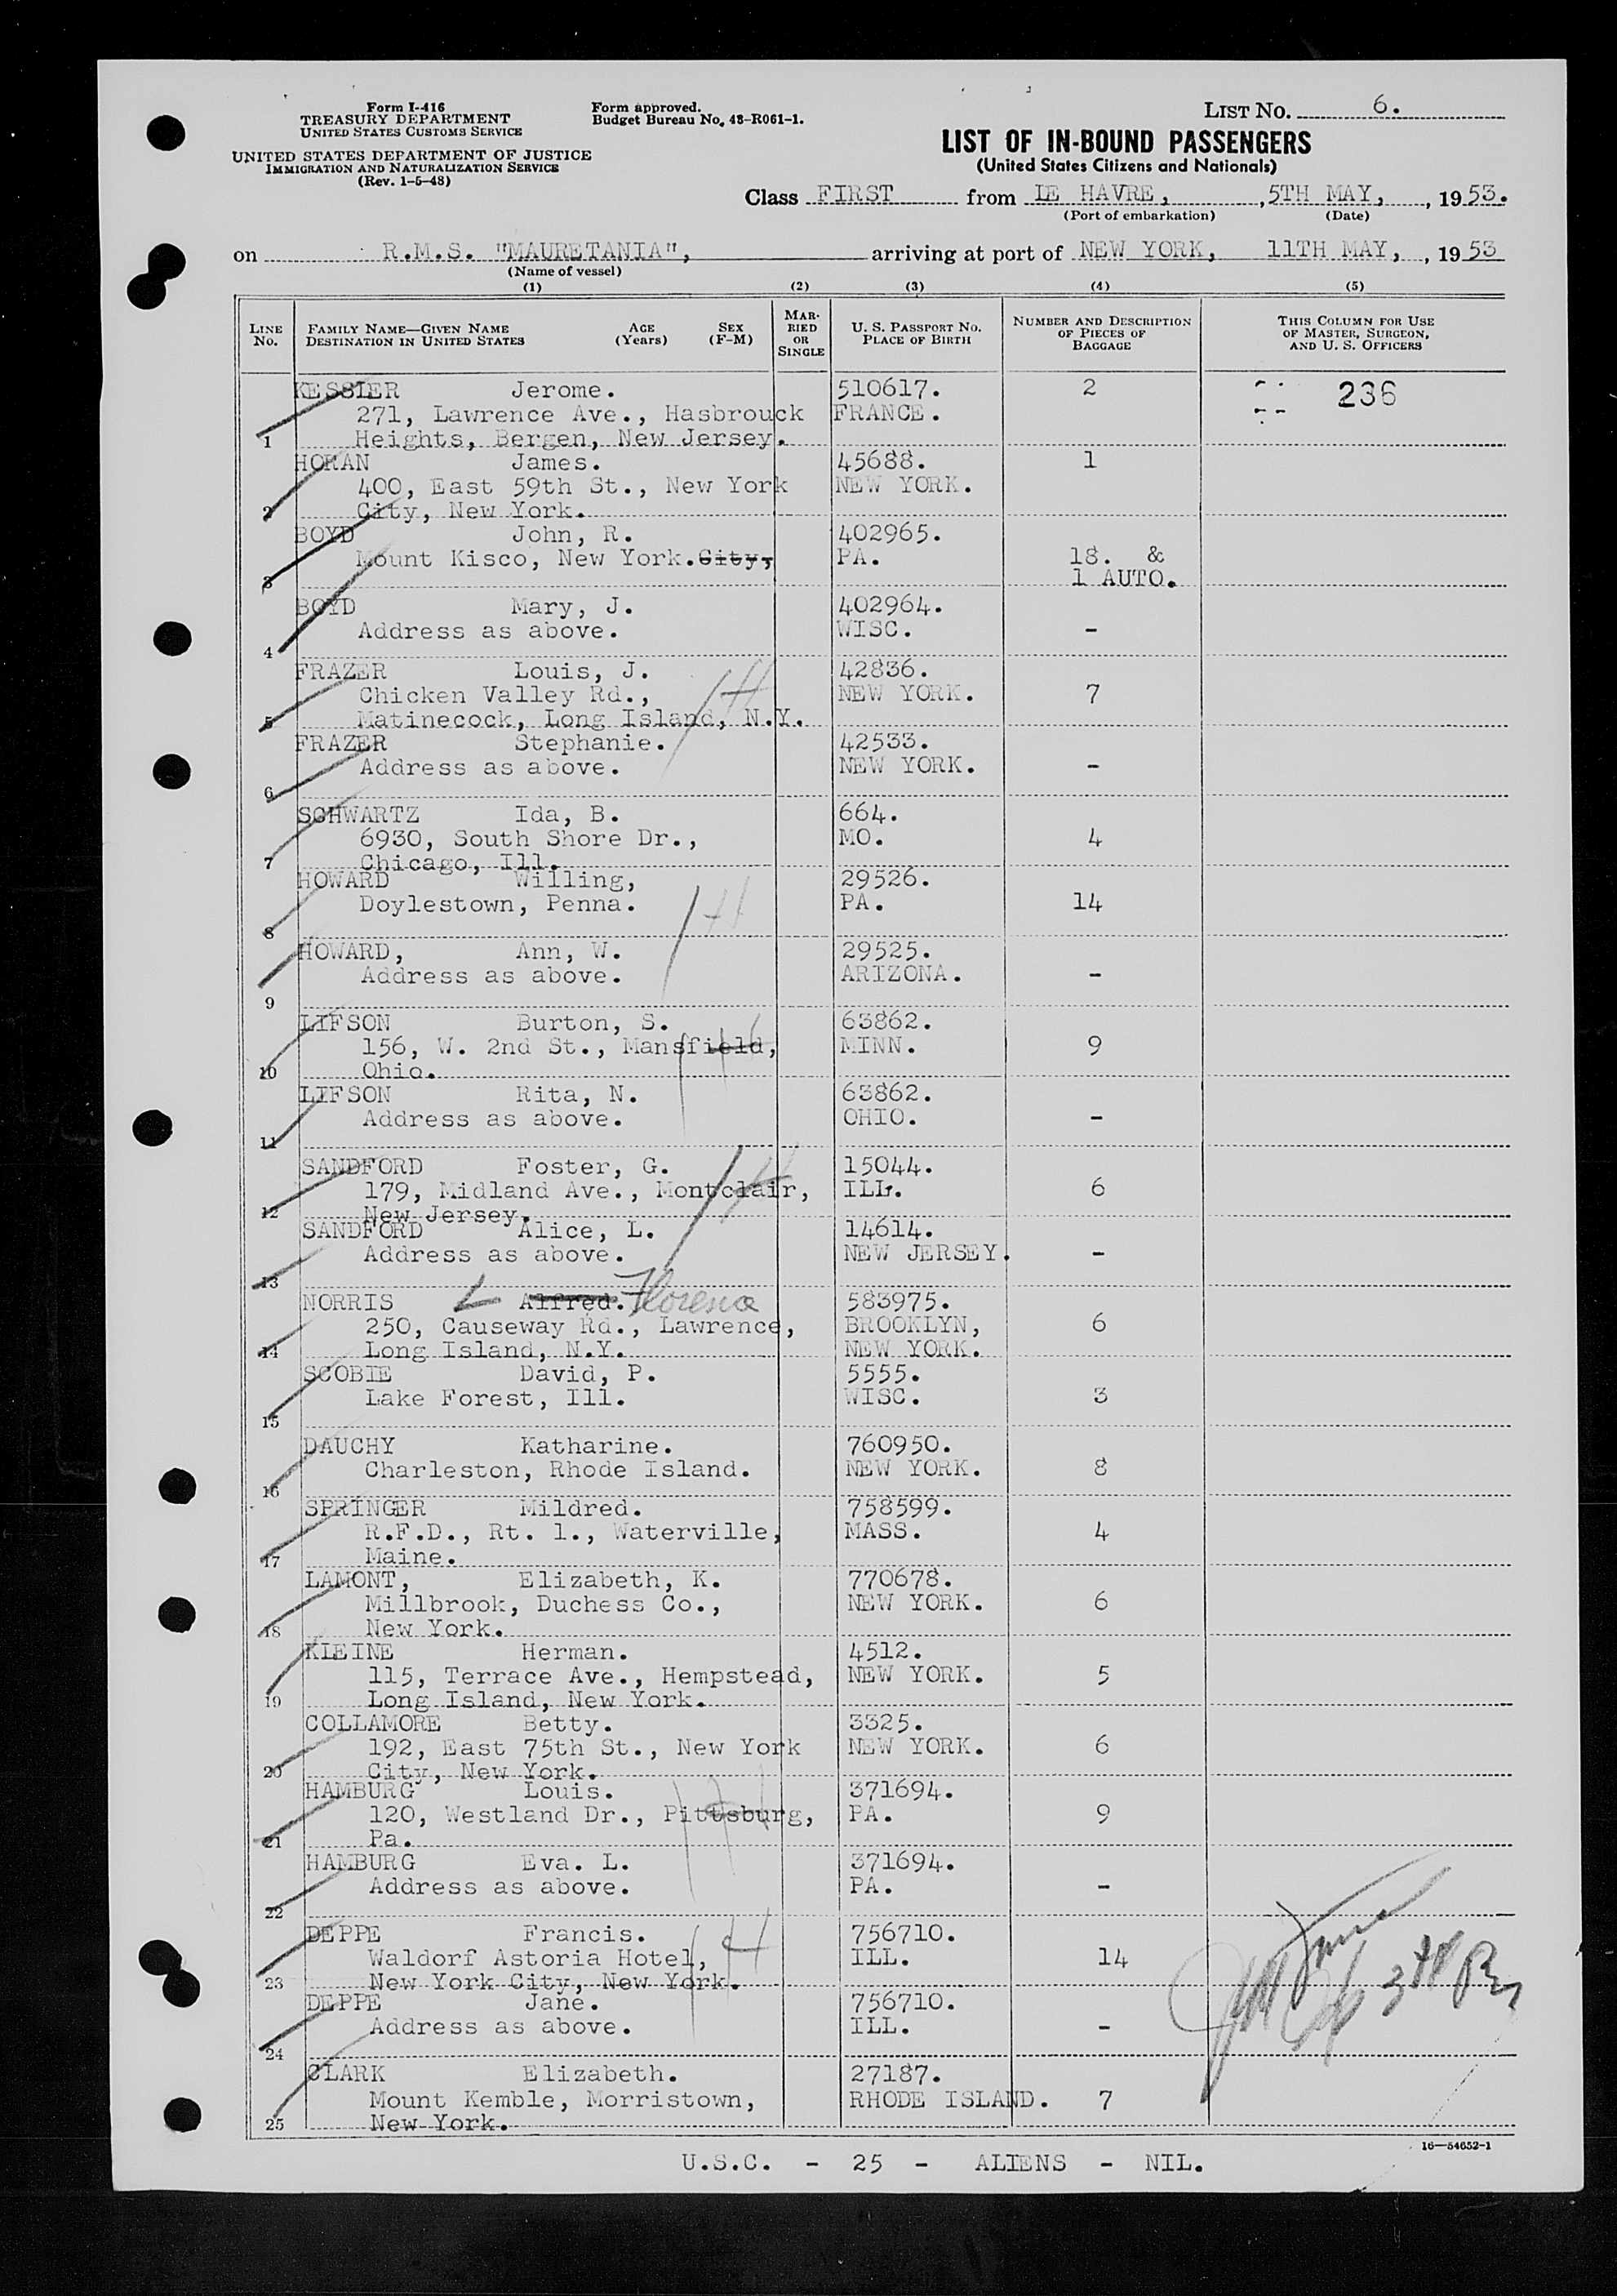 Form I-416
TREASURY DEPARTMENT
UNITED STATES CUSTOMS SERVICE
UNITED STATES DEPARTMENT OF JUSTICE
IMMIGRATION AND NATURALIZATION SERVICE
(Rev. 1-5-48)
Form approved.
Budget Bureau No. 48-R061-1.
LIST NO. 6.
LIST OF IN-BOUND PASSENGERS
(United States Citizens and Nationals)
Class FIRST from LE HAVRE, , 5TH MAY, , 1953.
(Port of embarkation) (Date)
on R.M.S. "MAURETANIA", arriving at port of NEW YORK, 11TH MAY, , 1953
(Name of vessel)
(1) (2) (3) (4) (5)
LINE No. FAMILY NAME—GIVEN NAME DESTINATION IN UNITED STATES AGE (Years) SEX (F-M) MARRIED OR SINGLE U. S. PASSPORT NO. PLACE OF BIRTH NUMBER AND DESCRIPTION OF PIECES OF BAGGAGE THIS COLUMN FOR USE OF MASTER, SURGEON, AND U. S. OFFICERS
KESSLER Jerome. 510617. 2 236
271, Lawrence Ave., Hasbrouck FRANCE.
1 Heights, Bergen, New Jersey.
HORAN James. 45688. 1
400, East 59th St., New York NEW YORK.
2 City, New York.
BOYD John, R. 402965.
Mount Kisco, New York. City, PA. 18. &
3 1 AUTO.
BOYD Mary, J. 402964.
Address as above. WISC. -
4
FRAZER Louis, J. 42836.
Chicken Valley Rd., NEW YORK. 7
5 Matinecock, Long Island, N.Y.
FRAZER Stephanie. 42533.
Address as above. NEW YORK. -
6
SCHWARTZ Ida, B. 664.
6930, South Shore Dr., MO. 4
7 Chicago, Ill.
HOWARD Willing, 29526.
Doylestown, Penna. PA. 14
8
HOWARD, Ann, W. 29525.
Address as above. ARIZONA. -
9
LIFSON Burton, S. 63862.
156, W. 2nd St., Mansfield, MINN. 9
10 Ohio.
LIFSON Rita, N. 63862.
Address as above. OHIO. -
11
SANDFORD Foster, G. 15044.
179, Midland Ave., Montclair, ILL. 6
12 New Jersey.
SANDFORD Alice, L. 14614.
Address as above. NEW JERSEY. -
13
NORRIS Alfred. Florence 583975.
250, Causeway Rd., Lawrence, BROOKLYN, 6
14 Long Island, N.Y. NEW YORK.
SCOBIE David, P. 5555.
Lake Forest, Ill. WISC. 3
15
DAUCHY Katharine. 760950.
Charleston, Rhode Island. NEW YORK. 8
16
SPRINGER Mildred. 758599.
R.F.D., Rt. 1., Waterville, MASS. 4
17 Maine.
LAMONT, Elizabeth, K. 770678.
Millbrook, Duchess Co., NEW YORK. 6
18 New York.
KLEINE Herman. 4512.
115, Terrace Ave., Hempstead, NEW YORK. 5
19 Long Island, New York.
COLLAMORE Betty. 3325.
192, East 75th St., New York NEW YORK. 6
20 City, New York.
HAMBURG Louis. 371694.
120, Westland Dr., Pittsburg, PA. 9
21 Pa.
HAMBURG Eva. L. 371694.
Address as above. PA. -
22
DEPPE Francis. 756710.
Waldorf Astoria Hotel, ILL. 14
23 New York City, New York.
DEPPE Jane. 756710.
Address as above. ILL. -
24
CLARK Elizabeth. 27187.
Mount Kemble, Morristown, RHODE ISLAND. 7
25 New York.
16—54652-1
U.S.C. - 25 - ALIENS - NIL.